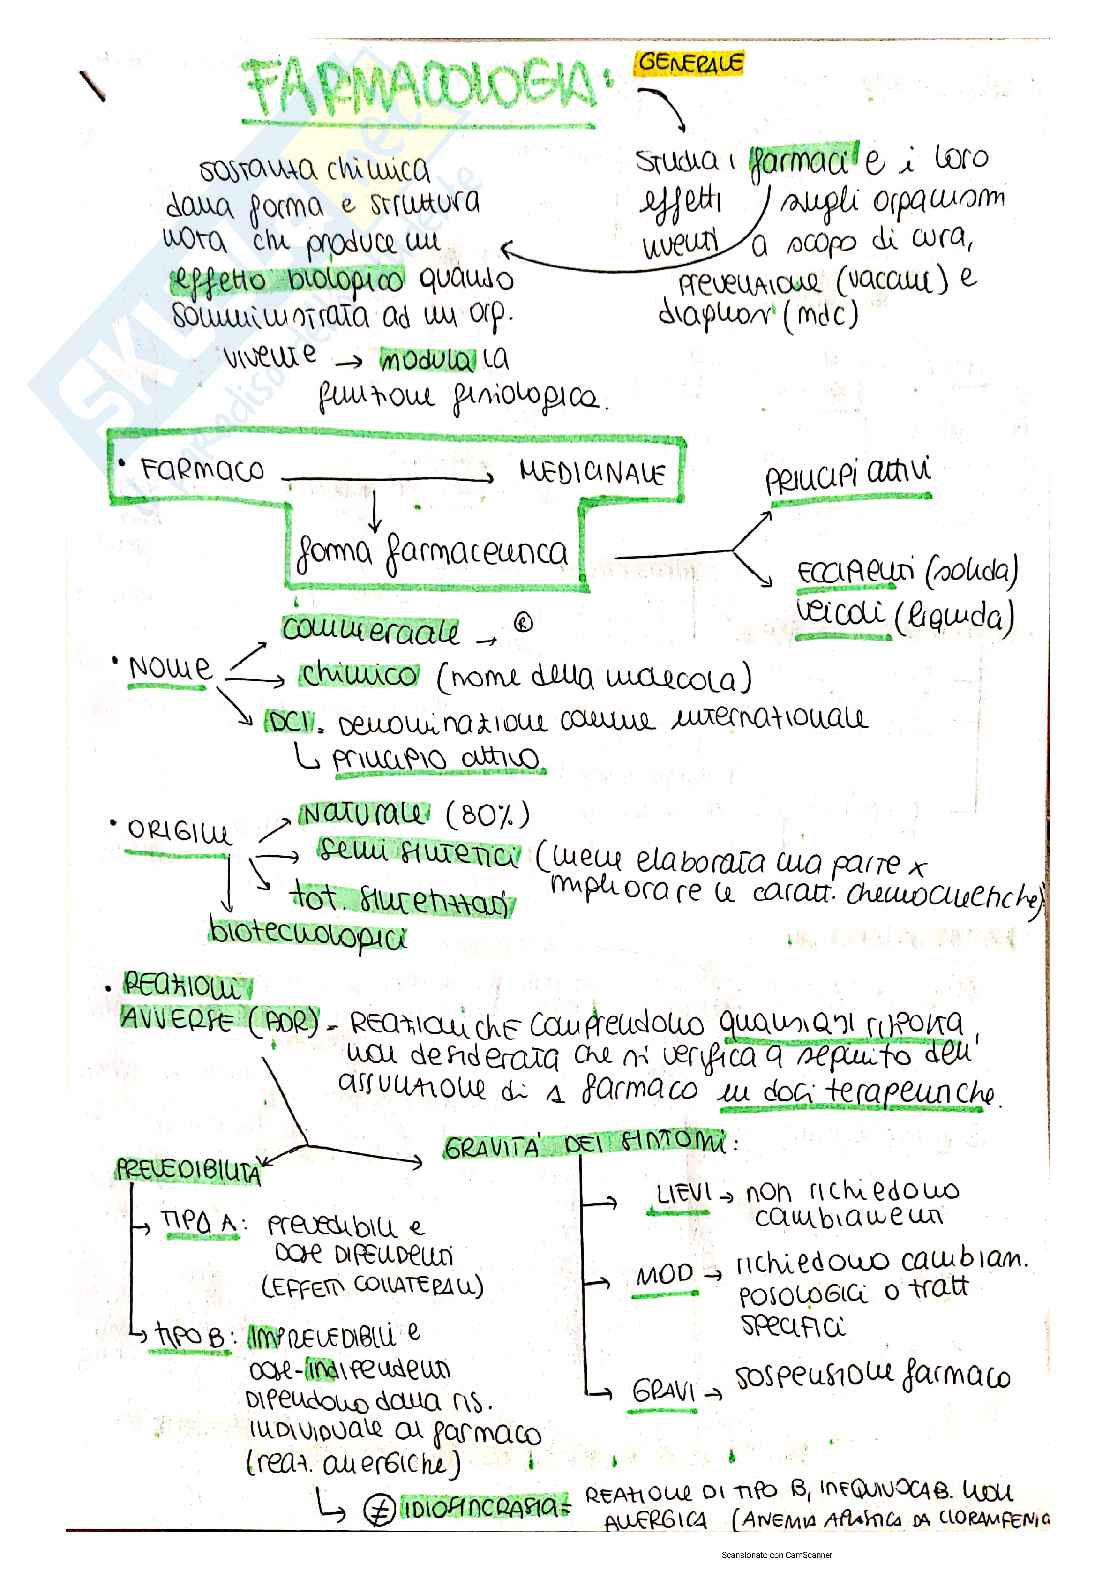 FARMACOLOGIA: GENERALE
studia i farmaci e i loro
effetti sugli organismi
viventi a scopo di cura,
prevenzione (vaccini) e
diagnosi (mdc)
sostanza chimica
dalla forma e struttura
nota che produce un
effetto biologico quando
somministrata ad un org.
vivente → modula la
funzione fisiologica.
• FARMACO → MEDICINALE
forma farmaceutica
PRINCIPI attivi
ECCIPIENTI (solida)
veicoli (liquida)
• NOME
commerciale → ®
chimico (nome della molecola)
DCI. DENOMINAZIONE comune INTERNAZIONALE
↳ PRINCIPIO attivo
• ORIGINE
NATURALE (80%)
semi sintetici (viene elaborata una parte x
migliorare le caratt. chemocinetiche)
tot. sintetizzati
biotecnologici
• REAZIONI
AVVERSE (ADR) = REAZIONI CHE comprendono qualsiasi risposta
non desiderata che si verifica a seguito dell'
assunzione di 1 farmaco in dosi terapeutiche.
PREVEDIBILITÀ
→ TIPO A: prevedibili e
dose DIPENDENTI
(EFFETTI COLLATERALI)
→ TIPO B: IMPREVEDIBILI e
dose-indipendenti
DIPENDONO dalla ris.
INDIVIDUALE al farmaco
(reaz. allergiche)
↳ ≠ IDIOSINCRASIA = REAZIONE DI TIPO B, INEQUIVOCAB. NON
ALLERGICA (ANEMIA APLASTICA DA CLORAMFENIC
GRAVITÀ DEI SINTOMI:
→ LIEVI → non richiedono
cambiamenti
→ MOD → richiedono cambiam.
POSOLOGICI o tratt
SPECIFICI
→ GRAVI → sospensione farmaco
Scansionato con CamScanner